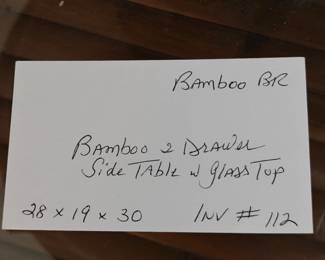 Bamboo BR
Bamboo 2 Drawer
Side Table w Glass Top
28 x 19 x 30 Inv # 112